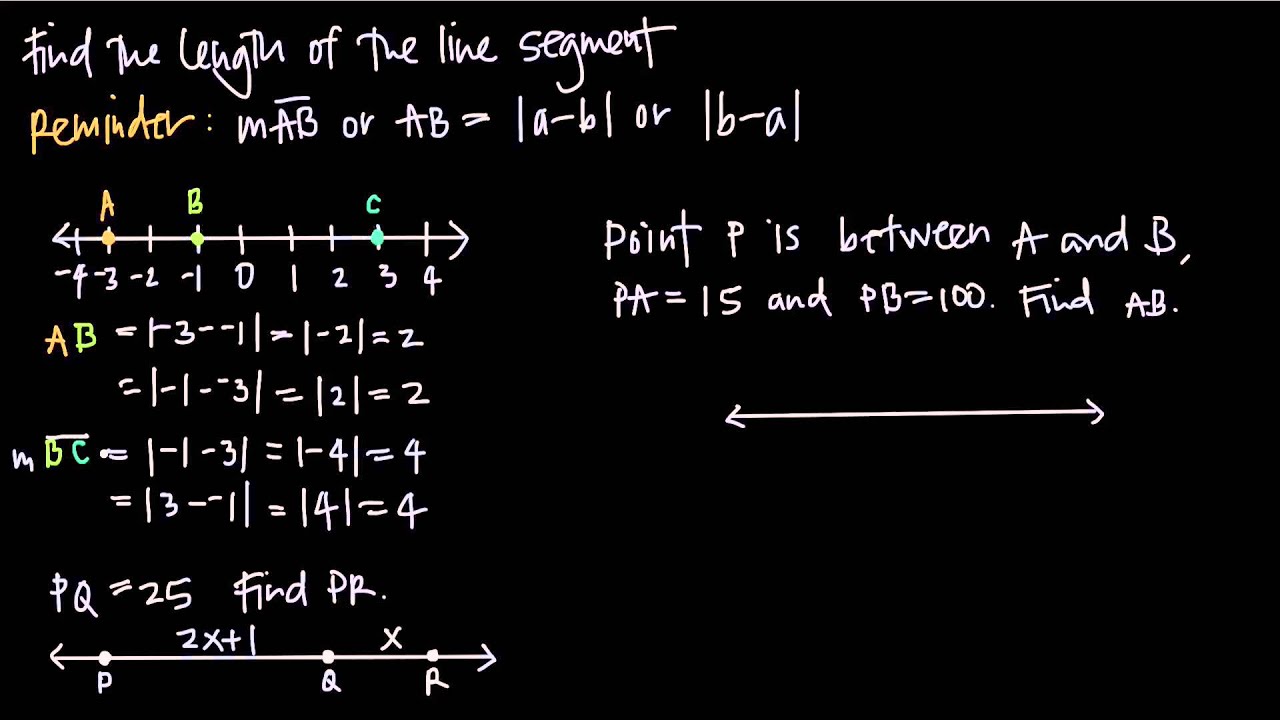 Find the length of the line segment
Reminder: mAB or AB = |a-b| or |b-a|
A B C
-4 -3 -2 -1 0 1 2 3 4
AB = |-3--1| = |-2| = 2
= |-1--3| = |2| = 2
mBC = |-1-3| = |-4| = 4
= |3--1| = |4| = 4
PQ = 25 Find PR.
2x+1 x
P Q R
Point P is between A and B,
PA = 15 and PB = 100. Find AB.